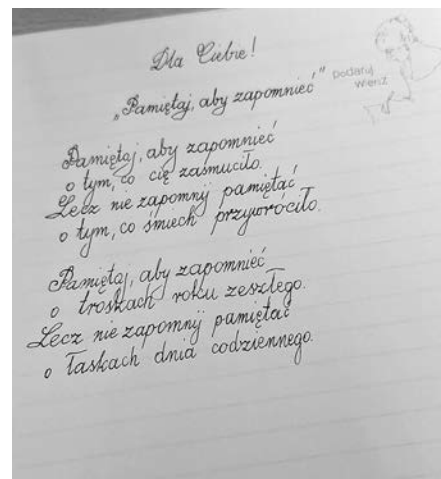 Dla Ciebie!
„Pamiętaj, aby zapomnieć"
Podaruj
Wiersz
Pamiętaj, aby zapomnieć
o tym, co cię zasmuciło.
Lecz nie zapomnij pamiętać
o tym, co śmiech przywróciło.
Pamiętaj, aby zapomnieć
o troskach roku zeszłego.
Lecz nie zapomnij pamiętać
o łaskach dnia codziennego.